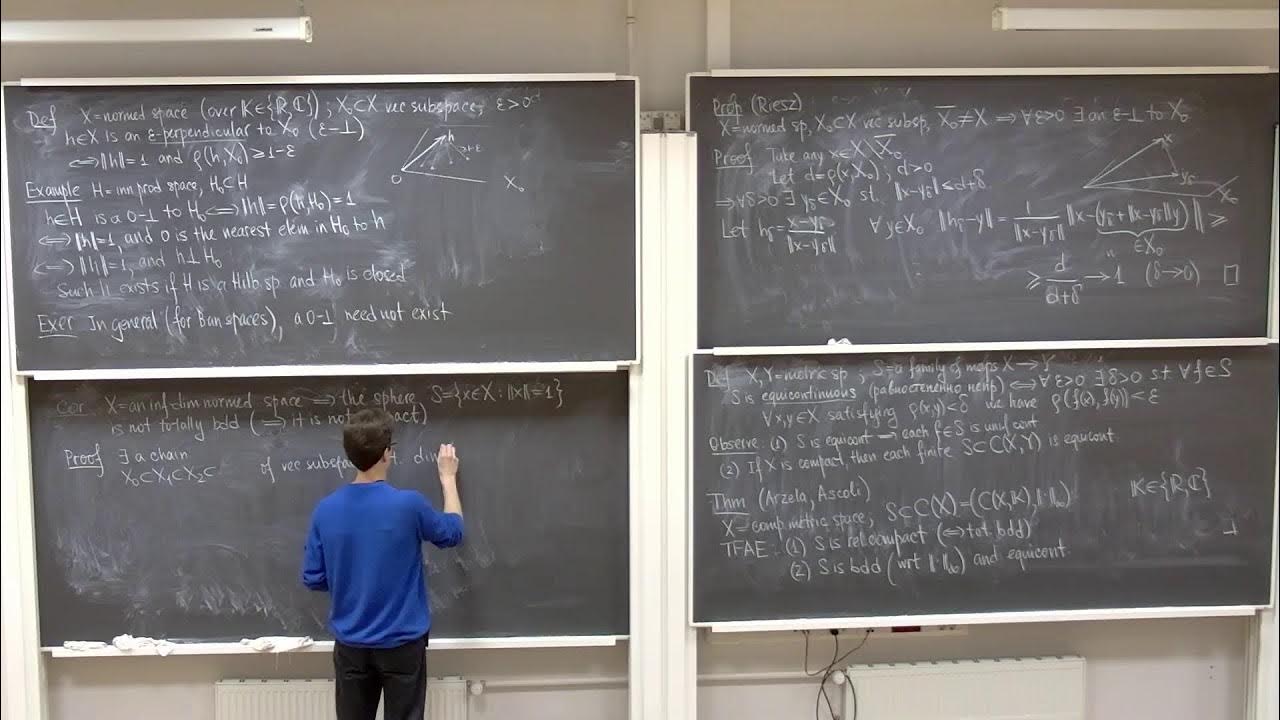 Def X=normed space (over K∈{R,C}); X₀⊂X vec subspace, ε>0
h∈X is an ε-perpendicular to X₀ (ε-⊥)
⟺ ||h||=1 and ρ(h,X₀)≥1-ε
h
≥1-ε
0
X₀
Example H=inn prod space, H₀⊂H
h∈H is a 0-⊥ to H₀ ⟺ ||h||=ρ(h,H₀)=1
⟺ ||h||=1, and 0 is the nearest elem in H₀ to h
⟺ ||h||=1, and h⊥H₀
Such h exists if H is a Hilb.sp and H₀ is closed
Exer In general (for Ban spaces), a 0-⊥ need not exist
Cor X=an inf-dim normed space ⟹ the sphere S={x∈X: ||x||=1}
is not totally bdd (⟹ it is not
Proof ∃ a chain
X₀⊂X₁⊂X₂⊂ of vec dim
Prop (Riesz)
X=normed sp, X₀⊂X vec subsp, X̄₀≠X ⟹ ∀ε>0 ∃ an ε-⊥ to X₀
Proof Take any x∈X\X̄₀
Let d=ρ(x,X₀); d>0
⟹ ∀δ>0 ∃ y_δ∈X₀ st. ||x-y_δ||≤d+δ
x
y_δ
X₀
Let h_δ = (x-y_δ)/||x-y_δ|| ∀y∈X₀ ||h_δ-y|| = 1/||x-y_δ|| ||x-(y_δ+||x-y_δ||y)|| ≥
∈X₀
≥ d/(d+δ) → 1 (δ→0) □
Def X,Y=metric sp, S=a family of maps X→Y
S is equicontinuous (равностепенно непр) ⟺ ∀ε>0 ∃δ>0 st ∀f∈S
∀x,y∈X satisfying ρ(x,y)<δ we have ρ(f(x),f(y))<ε
Observe: (1) S is equicont ⟹ each f∈S is unif cont
(2) If X is compact, then each finite S⊂C(X,Y) is equicont.
Thm (Arzela, Ascoli)
X=comp metric space, S⊂C(X)=(C(X,K),||·||∞) K∈{R,C}
TFAE: (1) S is rel.compact (⟺tot.bdd)
(2) S is bdd (wrt ||·||∞) and equicont.